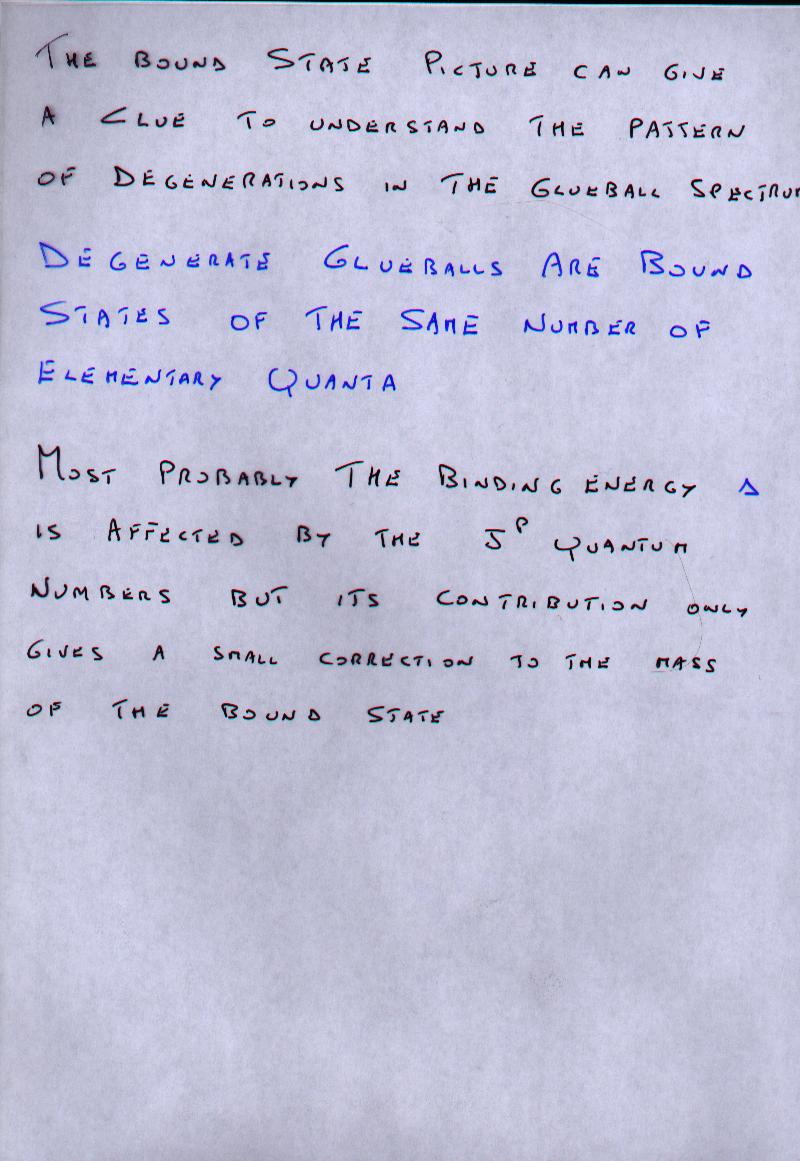 THE BOUND STATE PICTURE CAN GIVE
A CLUE TO UNDERSTAND THE PATTERN
OF DEGENERATIONS IN THE GLUEBALL SPECTRUM
DEGENERATE GLUEBALLS ARE BOUND
STATES OF THE SAME NUMBER OF
ELEMENTARY QUANTA
MOST PROBABLY THE BINDING ENERGY Δ
IS AFFECTED BY THE J^P QUANTUM
NUMBERS BUT ITS CONTRIBUTION ONLY
GIVES A SMALL CORRECTION TO THE MASS
OF THE BOUND STATE